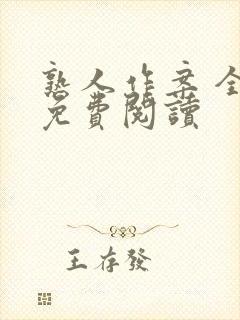 熟人作案全
免費閱讀
王存發